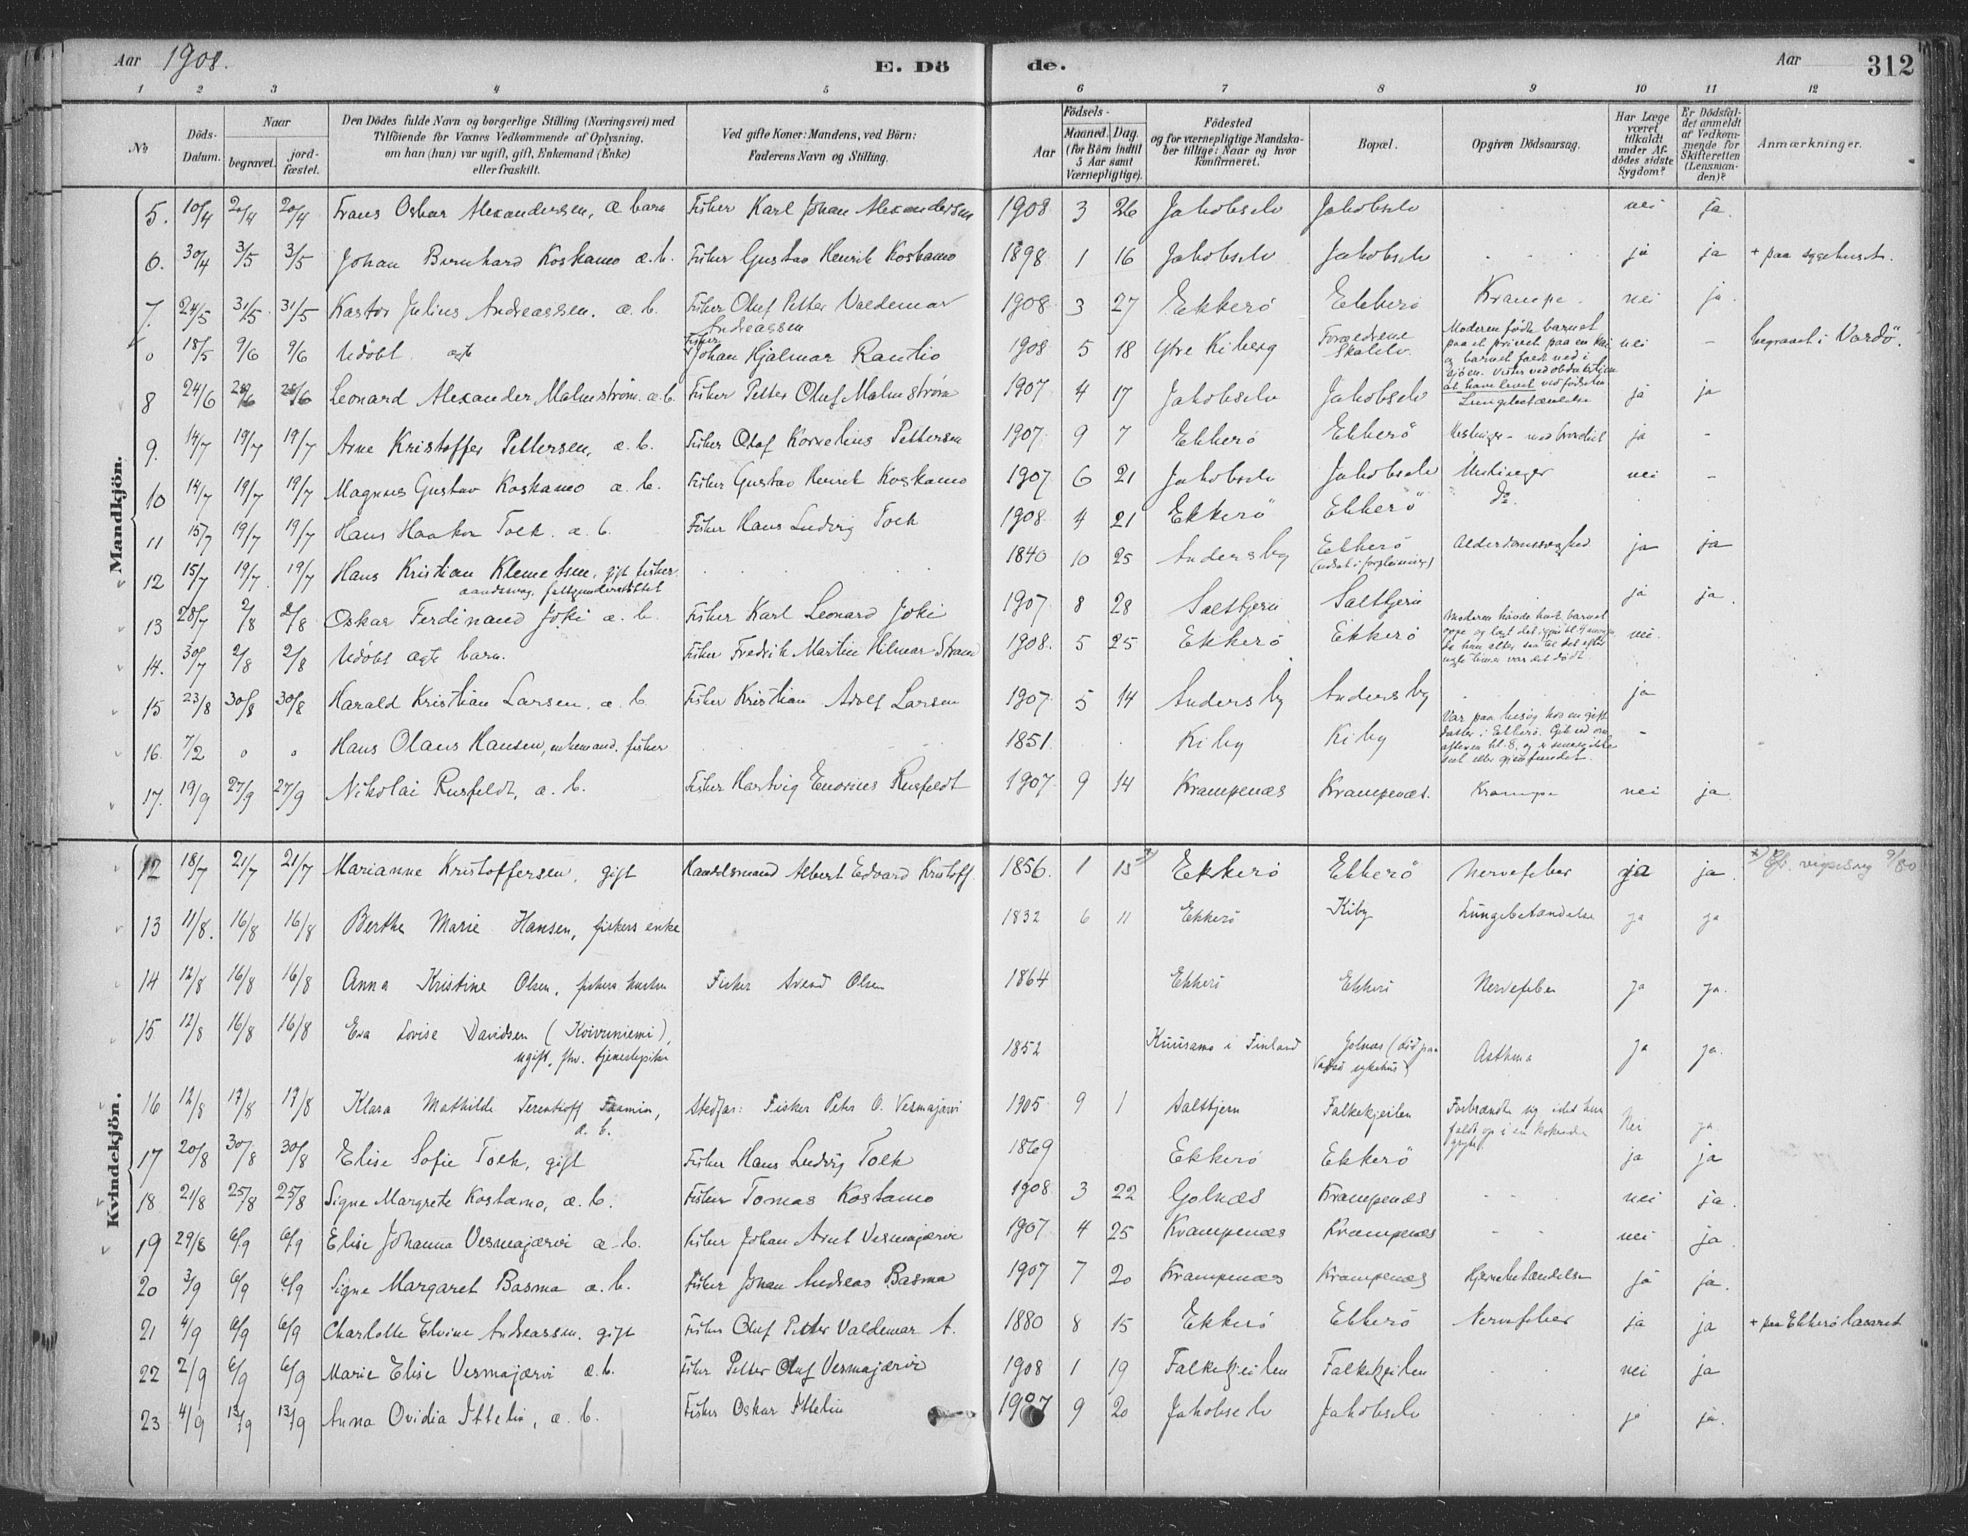 Aar 1908. E. Dö de. Aar 312
1 2 3 4 5 6 7 8 9 10 11 12
No
Döds-
Datum.
Naar
begravet.
jord-
fæstet.
Den Dödes fulde Navn og borgerlige Stilling (Næringsvei) med
Tilföiende for Voxnes Vedkommende af Oplysning,
om han (hun) var ugift, gift, Enkemand (Enke)
eller fraskilt.
Ved gifte Koner: Mandens, ved Börn:
Faderens Navn og Stilling.
Födsels-
Aar
Maaned. Dag.
(for Börn indtil
5 Aar samt
Værnepligtige).
Födested
og for værnepligtige Mandska-
ber tillige: Naar og hvor
konfirmeret.
Bopæl.
Opgiven Dödsaarsag.
Har Læge
været
tilkaldt
under Af-
dödes sidste
Sygdom?
Er Dödsfal-
det anmeldt
af Vedkom-
mende for
Skifteretten
(Lensman-
den)?
Anmærkninger.
Mandkjön.
5. 10/4 20/4 20/4 Frans Oskar Alexandersen, æ barn Fisker Karl Johan Alexandersen 1908 3 26 Jakobselv Jakobselv nei ja.
6. 30/4 3/5 3/5 Johan Bernhard Koskamo æ.b. Fisker Gustav Henrik Koskamo 1898 1 16 Jakobselv Jakobselv ja ja + paa sygehuset.
7. 24/5 31/5 31/5 Kastor Julius Andreassen. æ. b. Fisker Oluf Petter Valdemar Andreassen 1908 3 27 Ekkerö Ekkerö Krampe. nei ja.
0 18/5 9/6 9/6 Udöbt ægte Fisker Johan Hjalmar Rautio 1908 5 18 Ytre Kiberg Forældrene Skalelv.
Moderen fødte barnet
paa et privet paa en kai
og barnet faldt ned i
sjøen.
at have levet ved fødselen
nei - begravet i Vardö.
8 24/6 28/6 28/6 Leonard Alexander Malmstrøm. æ.b. Fisker Petter Oluf Malmstrøm 1907 4 17 Jakobselv Jakobselv Lungebetændelse ja ja
9. 14/7 19/7 19/7 Arne Kristoffer Pettersen, æ. b. Fisker Olaf Kornelius Pettersen 1907 9 7 Ekkerö Ekkerö ja -
10 14/7 19/7 19/7 Magnus Gustav Koskamo æ. b. Fisker Gustav Henrik Koskamo 1907 6 21 Jakobselv Jakobselv Meslinger nei -
11 15/7 19/7 19/7 Hans Haakon Tolk. æ. b. Fisker Hans Ludvig Tolk 1908 4 21 Ekkerö Ekkerö Do.
12 15/7 19/7. 19/7 Hans Kristian Klemetsen, gift fisker.
aandssvag. fattigunderstöttet
1840 10 25 Andersby Ekkerö
(udsat i forpleining)
Alderdomssvaghed ja ja
13 28/7 2/8 2/8 Oskar Ferdinand Joki æ. b. Fisker Karl Leonard Joki 1907 8 28 Saltbjern Saltbjern ja ja.
14. 30/7 2/8 2/8 Udöbt ægte barn. Fisker Fredrik Martin Hilmar Strand 1908. 5 25 Ekkerö Ekkerö
Moderen havde havt barnet
oppe og
nogle timer var det dödt.
nei.
15 23/8 30/8 30/8 Harald Kristian Larsen, æ. b. Fisker Kristian Adolf Larsen 1907 5 14 Andersby Andersby ja
16. 7/2 0 0 Hans Olaus Hansen, enkemand. fisker 1851. Kiby Kiby
Var paa besög hos en gift
datter i Ekkerö. Gik ud om
aftenen kl. 8, og er senere ikke
seet eller gjenfundet.
-
17. 19/9 27/9 27/9 Nikolai Rusfeldt, æ. b. Fisker Hartvig Enorius Rusfeldt 1907 9 14 Krampenæs Krampenæs. Krampe nei ja.
Kvindekjön.
12 18/7 21/7 21/7 Marianne Kristoffersen, gift Handelsmand Albert Edvard Kristoff. 1856. 1 15 Ekkerö Ekkerö Nervefeber ja ja. 9/80
13 11/8. 16/8 16/8 Berthe Marie Hansen, fiskers enke 1832 6 11 Ekkerö Kiby Lungebetændelse ja ja
14 12/8 16/8 16/8 Anna Kristine Olsen, fiskers hustru Fisker Svend Olsen 1864 Ekkerö Ekkerö Nervefeber ja ja.
15 12/8 16/8 16/8 Eva Lovise Davidsen (Koivuniemi),
ugift, fhv. tjenestepike
1852 Kuusamo i Finland Golnæs (död paa
Vadsö sykehus)
Asthma ja ja.
16 12/8 17/8 17/8 Klara Mathilde Terentkoff Fasmin,
æ. b.
Stedfar: Fisker Peter O. Vesmajärvi 1905 9 1 Saltbjern Falkekjeilen
Forbrændte sig, idet hun
faldt op i en kokende
gryte
Nei ja.
17 20/8 30/8 30/8 Elise Sofie Tolk, gift Fisker Hans Ludvig Tolk 1869 Ekkerö Ekkerö ja ja
18 21/8 25/8 25/8 Signe Margrete Kostamo, æ. b. Fisker Tomas Kostamo 1908 3 22 Golnæs Krampenæs nei ja.
19 29/8 6/9 6/9 Elise Johanna Vesmajærvi æ. b. Fisker Johan Arnt Vesmajærvi 1907. 4 25 Krampenæs Krampenæs nei ja.
20 3/9 6/9 6/9 Signe Margaret Basma æ. b. Fisker Johan Andreas Basma 1907 7 20 Krampenæs Krampenæs Hjernebetændelse ja ja.
21 4/9 6/9 6/9 Charlotte Elvine Andreassen. gift Fisker Oluf Petter Valdemar A. 1880 8 15 Ekkerö Ekkerö Nervefeber ja ja + paa Ekkerö lasaret
22 2/9 6/9 6/9 Marie Elise Vesmajærvi æ.b. Fisker Petter Oluf Vesmajærvi 1908 1 19 Falkekjeilen Falkekjeilen nei ja
23 4/9 13/9 13/9 Anna Ovidia Ittelin, æ. b. Fisker Oskar Ittelin 1907 9 20 Jakobselv Jakobselv ja ja.